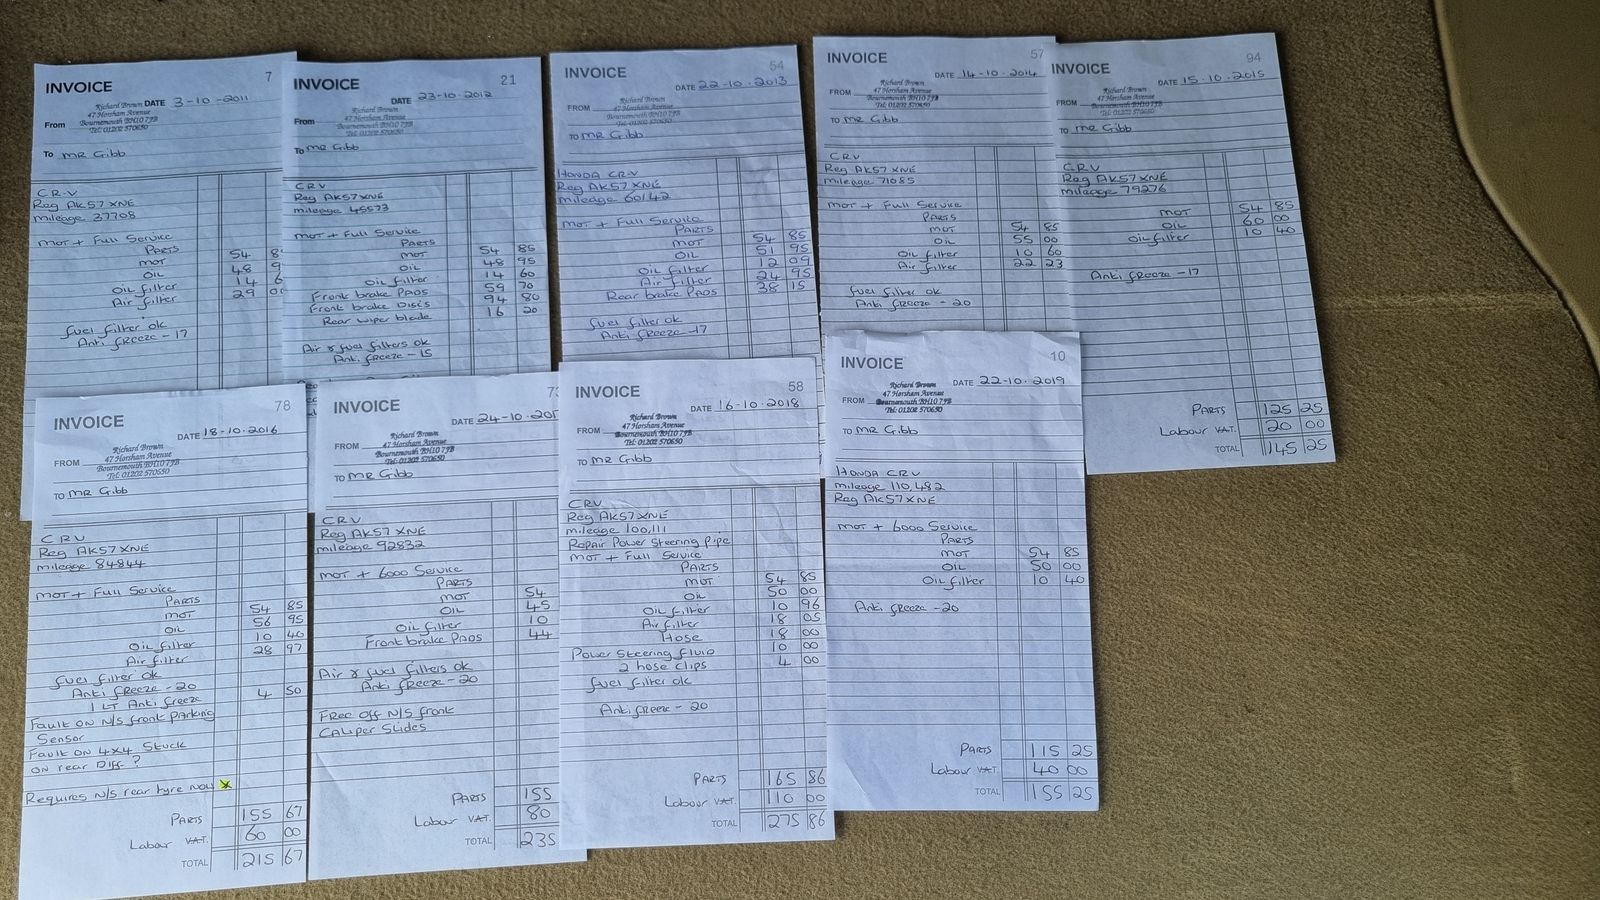 INVOICE 7
DATE 3-10-2011
From
Richard Brown
47 Horsham Avenue
Bournemouth BH10 7JB
Tel: 01202 570650
To Mr Gibb
CR-V
Reg AK57XNE
mileage 37708
MOT + Full Service
PARTS
MOT 54 8
OIL 48 9
Oil filter 14 6
Air filter 29 00
fuel filter ok
Anti freeze -17
INVOICE 21
DATE 23-10-2012
From
Richard Brown
47 Horsham Avenue
Bournemouth BH10 7JB
Tel: 01202 570650
To Mr Gibb
CRV
Reg AK57XNE
mileage 45573
MOT + Full Service
PARTS
MOT 54 85
OIL 48 95
Oil filter 14 60
Front brake PADS 59 70
Front brake Discs 94 80
Rear wiper blade 16 20
Air & fuel filters ok
Anti freeze -15
INVOICE 54
DATE 22-10-2013
FROM
Richard Brown
47 Horsham Avenue
Bournemouth BH10 7JB
Tel: 01202 570650
TO Mr Gibb
HONDA CRV
Reg AK57XNE
mileage 60142
MOT + Full Service
PARTS
MOT 54 85
OIL 51 95
Oil filter 12 09
Air filter 24 95
Rear brake PADS 38 15
fuel filter ok
Anti freeze -17
INVOICE 57
DATE 14-10-2014
FROM
Richard Brown
47 Horsham Avenue
Bournemouth BH10 7JB
Tel: 01202 570650
TO Mr Gibb
CRV
Reg AK57XNE
mileage 71085
MOT + Full Service
PARTS
MOT 54 85
OIL 55 00
Oil filter 10 60
Air filter 22 23
fuel filter ok
Anti freeze -20
INVOICE 94
DATE 15.10.2015
FROM
Richard Brown
47 Horsham Avenue
Bournemouth BH10 7JB
Tel: 01202 570650
TO Mr Gibb
CRV
Reg AK57XNE
mileage 79276
MOT 54 85
OIL 60 00
Oil filter 10 40
Anti freeze -17
PARTS 125 25
Labour VAT. 20 00
TOTAL 145 25
INVOICE 78
DATE 18-10-2016
FROM
Richard Brown
47 Horsham Avenue
Bournemouth BH10 7JB
Tel: 01202 570650
TO Mr Gibb
CRV
Reg AK57XNE
mileage 84844
MOT + Full Service
PARTS
MOT 54 85
OIL 56 95
Oil filter 10 40
Air filter 28 97
fuel filter ok
Anti freeze -20
1 LT Anti freeze 4 50
Fault on N/S front parking
Sensor
Fault on 4x4 Stuck
on rear Diff ?
Requires N/S rear tyre now
PARTS 155 67
Labour VAT. 60 00
TOTAL 215 67
INVOICE 73
DATE 24-10-201
FROM
Richard Brown
47 Horsham Avenue
Bournemouth BH10 7JB
Tel: 01202 570650
TO Mr Gibb
CRV
Reg AK57XNE
mileage 92832
MOT + 6000 Service
PARTS
MOT 54
OIL 45
Oil filter 10
Front brake PADS 44
Air & fuel filters ok
Anti freeze -20
Free off N/S front
Caliper Slides
PARTS 155
Labour VAT. 80
TOTAL 235
INVOICE 58
DATE 16-10-2018
FROM
Richard Brown
47 Horsham Avenue
Bournemouth BH10 7JB
Tel: 01202 570650
TO Mr Gibb
CRV
Reg AK57XNE
mileage 100,111
Repair Power Steering Pipe
MOT + Full Service
PARTS
MOT 54 85
OIL 50 00
Oil filter 10 96
Air filter 18 05
Hose 18 00
Power Steering fluid 10 00
2 hose clips 4 00
fuel filter ok
Anti freeze -20
PARTS 165 86
Labour VAT. 110 00
TOTAL 275 86
INVOICE 10
DATE 22-10-2019
FROM
Richard Brown
47 Horsham Avenue
Bournemouth BH10 7JB
Tel: 01202 570650
TO Mr Gibb
HONDA CRV
mileage 110,482
Reg AK57XNE
MOT + 6000 Service
PARTS
MOT 54 85
OIL 50 00
Oil filter 10 40
Anti freeze -20
PARTS 115 25
Labour VAT 40 00
TOTAL 155 25